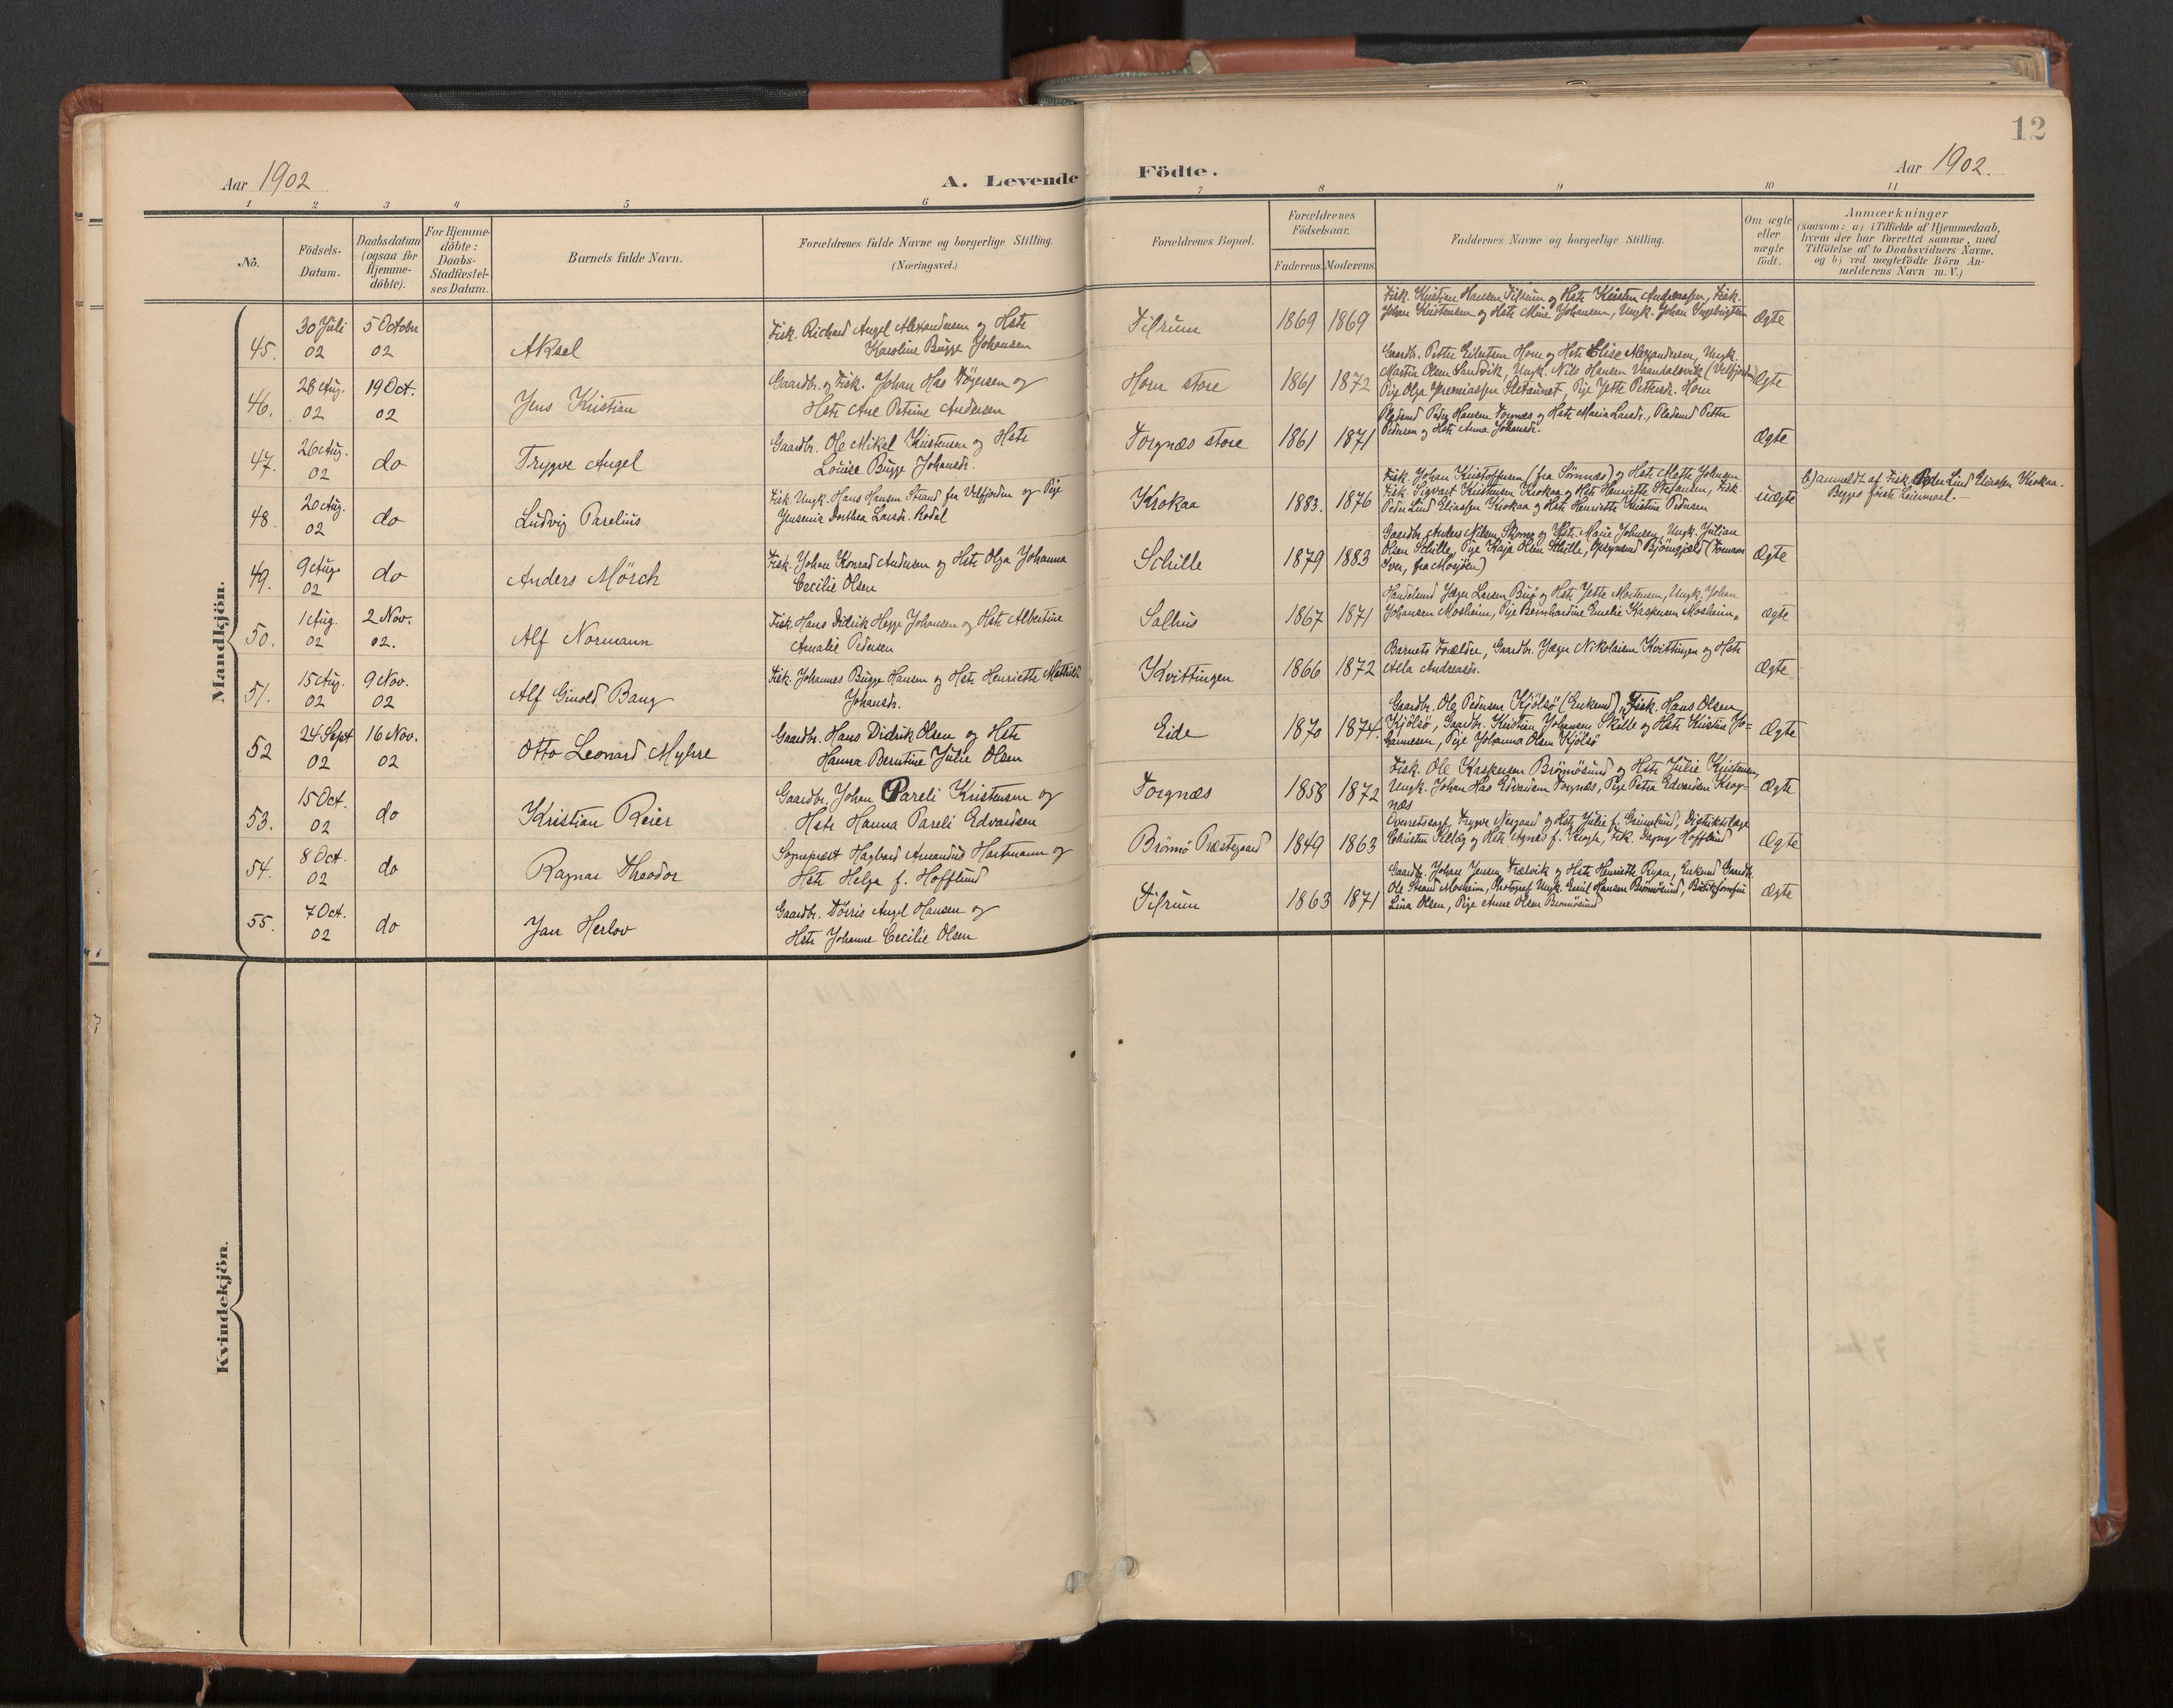 12
Aar 1902
A. Levende Födte.
Aar 1902.
1 2 3 4 5 6 7 8 9 10 11
No.
Födsels-Datum.
Daabsdatum (ogsaa for Hjemmedöbte).
For Hjemmedöbte: Daabs-Stadfæstelses Datum.
Barnets fulde Navn.
Forældrenes fulde Navne og borgerlige Stilling. (Næringsvei.)
Forældrenes Bopæl.
Forældrenes Födselsaar.
Faderens. Moderens.
Faddernes Navne og borgerlige Stilling.
Om ægte eller uægte födt.
Anmærkninger
(saasom: a) i Tilfælde af Hjemmedaab,
hvem der har forrettet samme, med
Tilföielse af to Daabsvidners Navne.
og b) ved uægtefödte Börn An-
melderens Navn m. V.)
Mandkjön.
45. 30 Juli 02 5 October 02 Aksel
Fisk. Richard Angel Alexandersen og Hstr
Karoline Bugge Johansen
Tilrum 1869 1869
Fisk. Kristian Hansen Tilrum og Hstr Kirsten Andreassen, Fisk.
Johan Kristensen og Hstr Mine Johansen, Ungk. Johan Ingebrigtsen
Ægte
46. 28 Aug. 02 19 Oct. 02 Jens Kristian
Gaardbr. og Fisk. Johan Has Dögersen og
Hstr Ane Petrine Andersen
Horn store 1861 1872
Gaardbr. Petter Eilertsen Horn og Hstr Elise Alexandersen, Ungk.
Martin Olsen Sandvik, Ungk. Nils Hansen Vaandalsvik (Velfjorden)
Pige Olga Jeremiassen Sletaunet, Pige Jette Pettersdr. Horn
Ægte
47. 26 Aug. 02 do Trygve Angel
Gaardbr. Ole Mikal Kristensen og Hstr
Louise Bugge Johansdr.
Torgnæs store 1861 1871
Pladsmd Peder Hansen Torgnæs og Hstr Maria Larsdr., Pladsmd Petter
Pedersen og Hstr Anna Johansdr.
Ægte
48. 20 Aug. 02 do Ludvig Parelius
Fisk. Ungk. Hans Hansen Strand fra Velfjorden og Pige
Jensenia Dorthea Larsdr. Rodal
Krokaa 1883. 1876
Fisk. Johan Kristoffersen (fra Sömnæs) og Hstr Mette Johnsen
Fisk. Sigvart Kristensen Krokaa og Hstr Henriette Stefansen, Fisk.
Peder Lind Eliassen Krokaa og Hstr Henriette Kristine Pedersen
uægte
b) anmeldt af Fisk. Peder Lind Eliassen Krokaa.
Begges förste Leiermaal.
49. 9 Aug. 02 do Anders Mörch
Fisk. Johan Konrad Andersen og Hstr Olga Johanna
Cecilie Olsen
Schille 1879 1883
Gaardbr. Anders Nilsen Skomo og Hstr. Marie Johnsen, Ungk. Julian
Olsen Schille, Pige Kaja Olsen Schille, Opsynsmd Björnsfjeld (Fornavn
Iver, fra Mosjöen)
Ægte
50. 1 Aug. 02 2 Nov. 02. Alf Normann
Fisk. Hans Didrik Hegge Johansen og Hstr Albertine
Amalie Pedersen
Salhus 1867 1871
Handelsmd Jæger Larsen Buö og Hstr Jette Mortensen, Ungk. Johan
Johansen Mosheim, Pige Bernhardine Emelie Kaspersen Mosheim.
ægte
51. 15 Aug. 02 9 Nov. 02 Alf Ginold Bang
Fisk. Johannes Bugge Hansen og Hstr Henriette Mathilde
Johansdr.
Kvittingen 1866 1872
Barnets Forældre, Gaardbr. Jæger Nikolaisen Kvittingen og Hstr
Alla Andreasdr.
Ægte
52 24 Sept 02 16 Nov. 02 Otto Leonard Myhre
Gaardbr. Hans Didrik Olsen og Hstr
Hanna Berntine Julie Olsen
Eide 1870 1874.
Gaardbr. Ole Pedersen Kjölsö (Enkemd), Fisk. Hans Olsen
Kjölsö, Gaardbr. Kristian Johansen Skille og Hstr Kristine Jo-
hannesen, Pige Johanna Olsen Kjölsö
Ægte
53. 15 Oct. 02 do Kristian Reier
Gaardbr. Johan Pareli Kristensen og
Hstr Hanna Pareli Edvardsen
Torgnæs 1858 1872
Fisk. Ole Kaspersen Brönnösund og Hstr Julie Kristensen,
Ungk. Johan Has Edvardsen Torgnæs, Pige Petra Edvardsen Krog-
næs
Ægte
54. 8 Oct. 02 do Ragnar Theodor
Sognepræst Hagbard Amandus Hartmann og
Hstr Helga f. Hofflund
Brönnö Præstegaard 1849 1863
Overretssagf. Trygve Nergaard og Hstr Julie f. Grönlund, Distriktslæge
Christen Kellag og Hstr Agnes f. Krogh, Frk. Dagny Hofflund
Ægte
55. 7 Oct. 02 do Jan Herlov
Gaardbr. Dörris Angel Hansen og
Hstr Johanne Cecilie Olsen
Tilrum 1863 1871
Gaardbr. Johan Jensen Trælvik og Hstr Henriette Ryan, Enkemd Gaardbr.
Ole Strand Mosheim, Photograf Ungk. Emil Hansen Brönnösund, Butikjomfru
Lina Olsen, Pige Anne Olsen Brönnösund
Ægte
Kvindekjön.